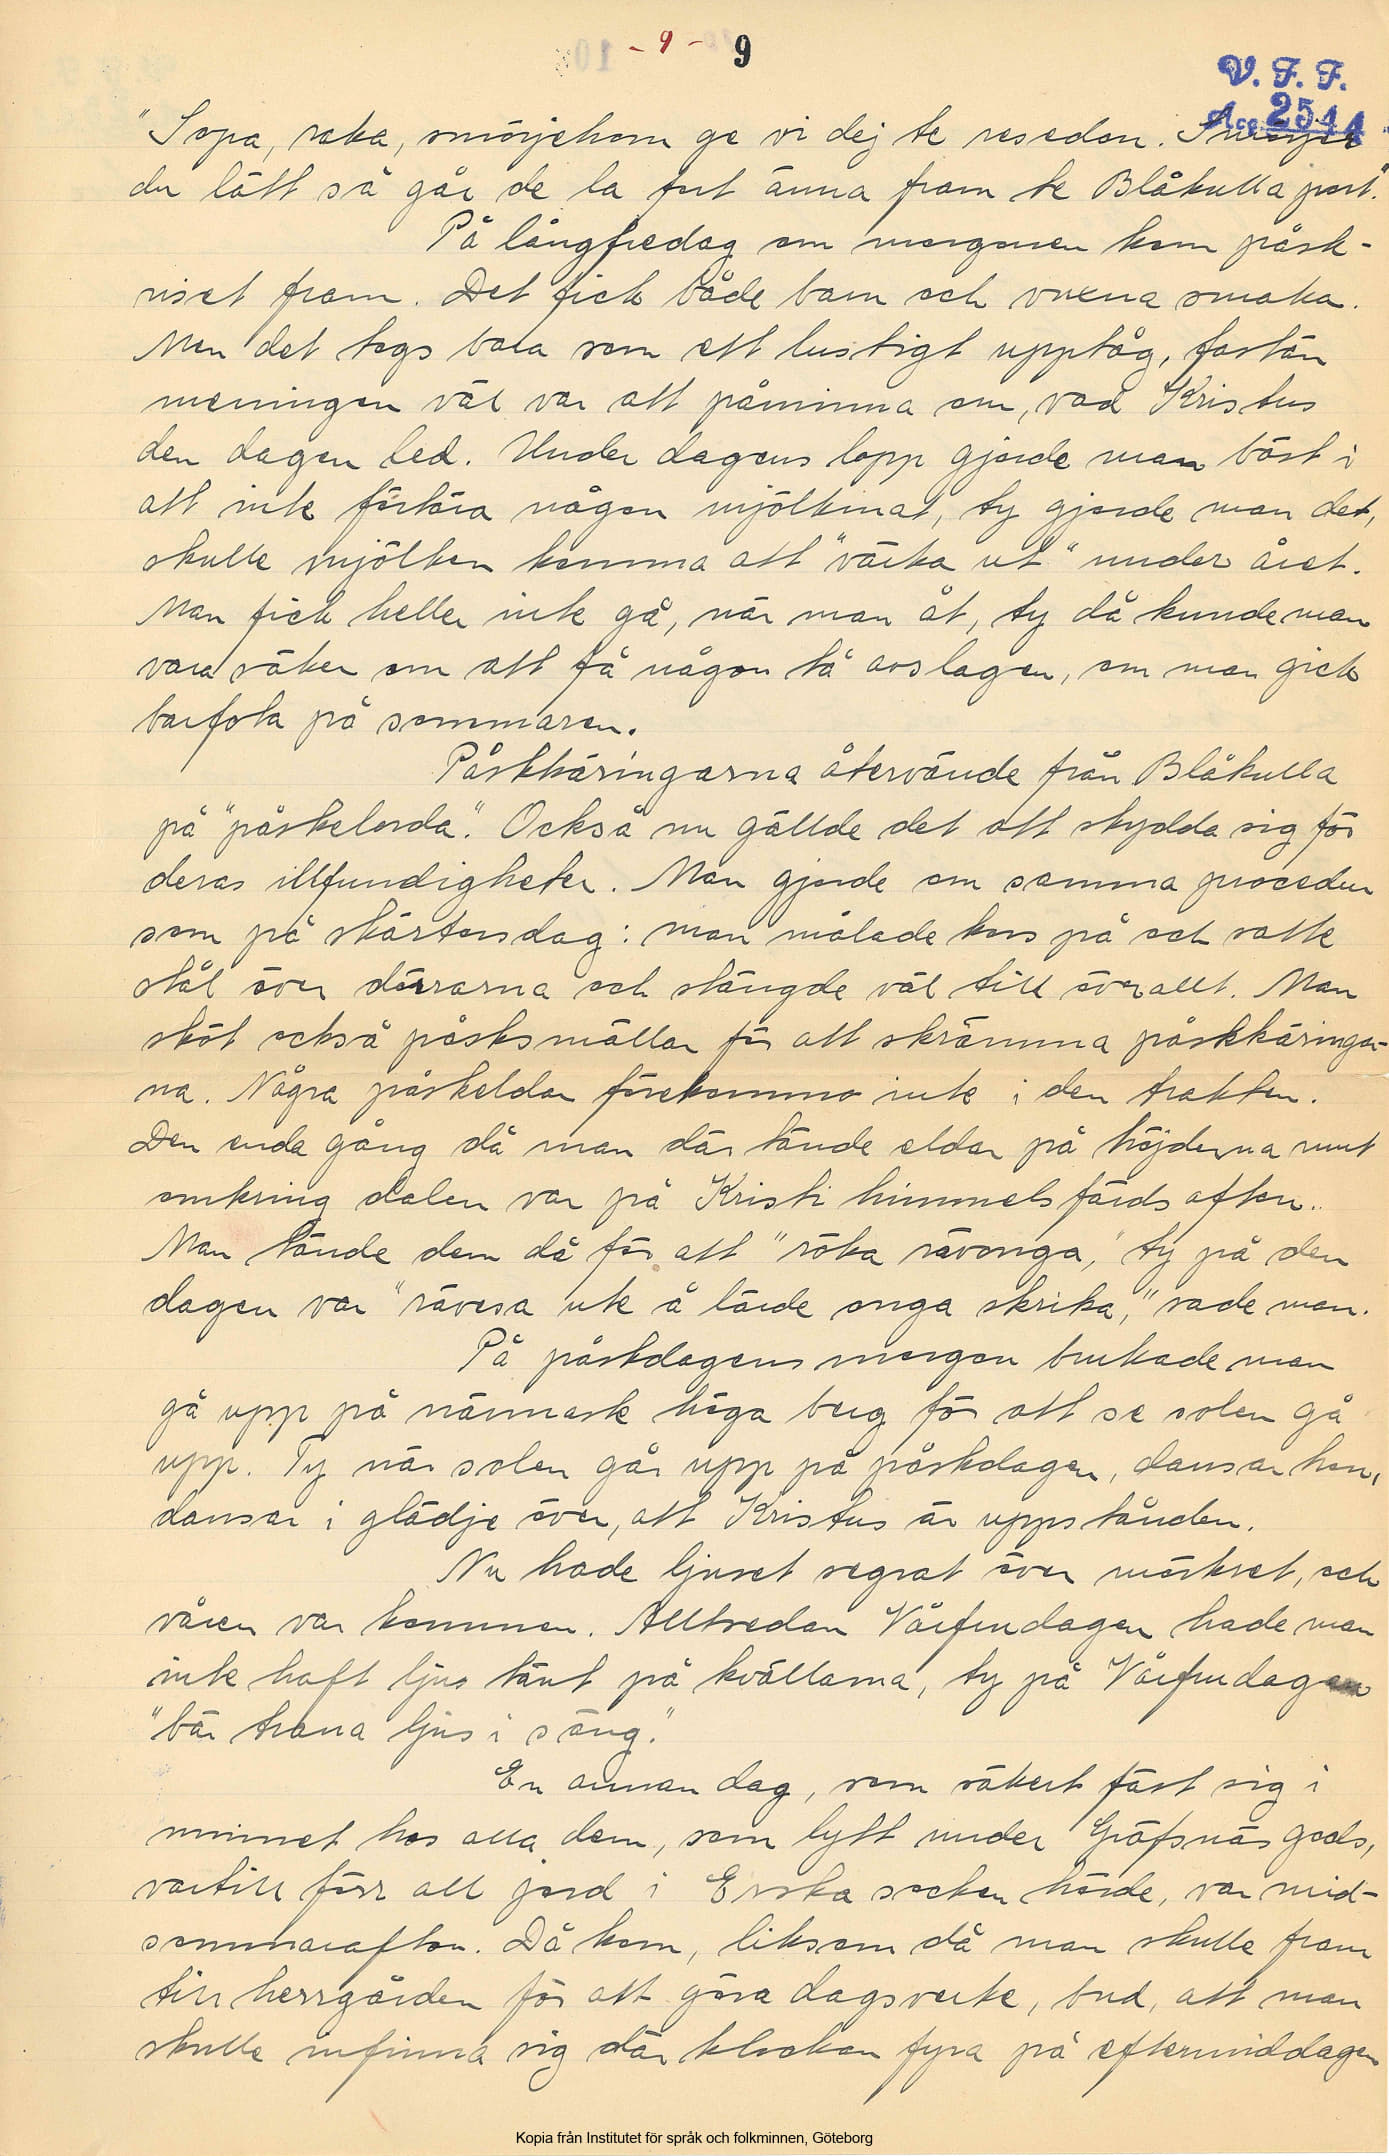 - 9 - 9
V. F. F.
Acc 2544
"Sopa, raka, smörjehorn ge vi dej te resedon. Smörjer
du lätt så går de la fort änna fram te Blåkulla port."
På långfredag om morgonen kom påsk-
riset fram. Det fick både barn och vuxna smaka.
Men det togs bara som ett lustigt upptåg, fastän
meningen väl var att påminna om, vad Kristus
den dagen led. Under dagens lopp gjorde man bäst i
att inte förtära någon mjölkmat, ty gjorde man det,
skulle mjölken komma att "värka ut" under året.
Man fick heller inte gå, när man åt, ty då kunde man
vara säker om att få någon tå avslagen, om man gick
barfota på sommaren.
Påskkäringarna återvände från Blåkulla
på "påskelörda". Också nu gällde det att skydda sig för
deras illfundigheter. Man gjorde om samma procedur
som på skärtorsdag: man målade kors på och satte
stål över dörrarna och stängde väl till överallt. Man
sköt också påsksmällar för att skrämma påskkäringar-
na. Några påskeldar förekommo inte i den trakten.
Den enda gång då man där tände eldar på höjderna runt
omkring dalen var på Kristi himmelsfärdsafton.
Man tände dem då för att "röka rävonga," ty på den
dagen var "rävesa ute å lärde onga skrika," sade man.
På påskdagens morgon brukade man
gå upp på närmaste höga berg för att se solen gå
upp. Ty när solen går upp på påskdagen, dansar hon,
dansar i glädje över, att Kristus är uppstånden.
Nu hade ljuset segrat över mörkret, och
våren var kommen. Alltredan Vårfrudagen hade man
inte haft ljus tänt på kvällarna, ty på Vårfrudagen
"bär trana ljus i säng."
En annan dag, som säkert fäst sig i
minnet hos alla dem, som lytt under Gräfsnäs gods,
vartill förr all jord i Erska socken hörde, var mid-
sommarafton. Då kom, liksom då man skulle fram
till herrgården för att göra dagsverke, bud, att man
skulle infinna sig där klockan fyra på eftermiddagen
Kopia från Institutet för språk och folkminnen, Göteborg